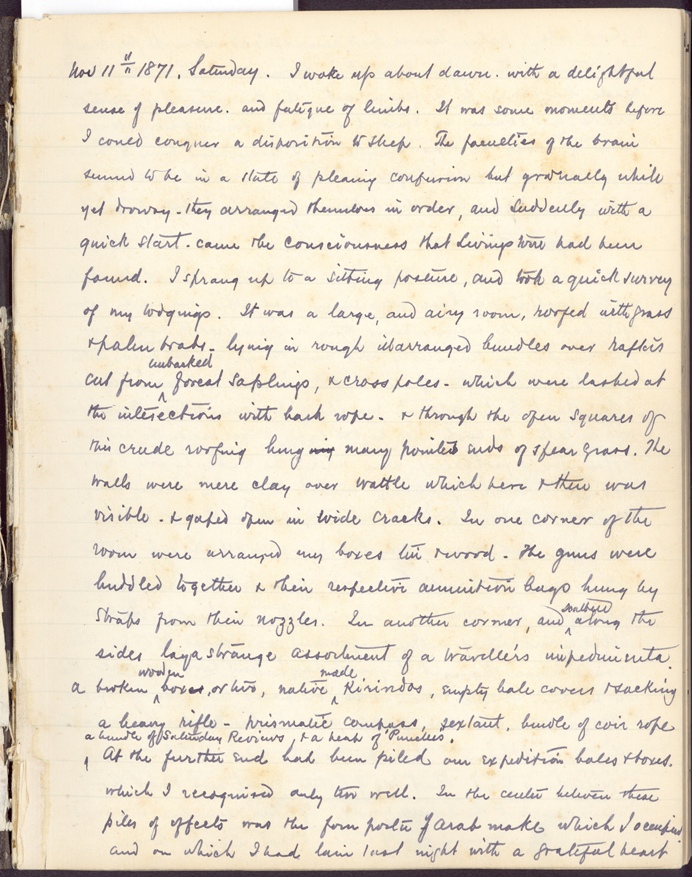 Nov 11th 1871. Saturday. I woke up about dawn. with a delightful
sense of pleasure. and fatigue of limbs. It was some moments before
I could conquer a disposition to sleep. The faculties of the brain
seemed to be in a state of pleasing confusion but gradually while
yet drowsy - they arranged themselves in order, and suddenly with a
quick start - came the consciousness that Livingstone had been
found. I sprang up to a sitting posture, and took a quick survey
of my lodgings. It was a large, and airy room, roofed with grass
& palm - lying in rough arranged bundles over rafters
unbarked
cut from forest saplings, & cross poles - which were lashed at
the intersections with bark rope - & through the open squares of
this crude roofing hung many pointed ends of spear grass. The
walls were mere clay over wattle which here & there was
visible - & gaped open in wide cracks. In one corner of the
room were arranged my boxes tin & wood - The guns were
huddled together & their respective ammunition bags hung by
straps from their nozzles. In another corner, and along the
sides lay a strange assortment of a traveller's impedimenta.
wooden made
a broken boxes, or two, native Kirindos, empty bale covers & sacking
a heavy rifle - prismatic compass, sextant, bundle of coir rope
a bundle of Saturday Reviews, & a heap of "Punches".
At the further end had been piled our expedition bales & boxes.
which I recognised only too well. In the center between these
piles of effects was the of Arab make which I occupied
and on which I had lain last night with a grateful heart